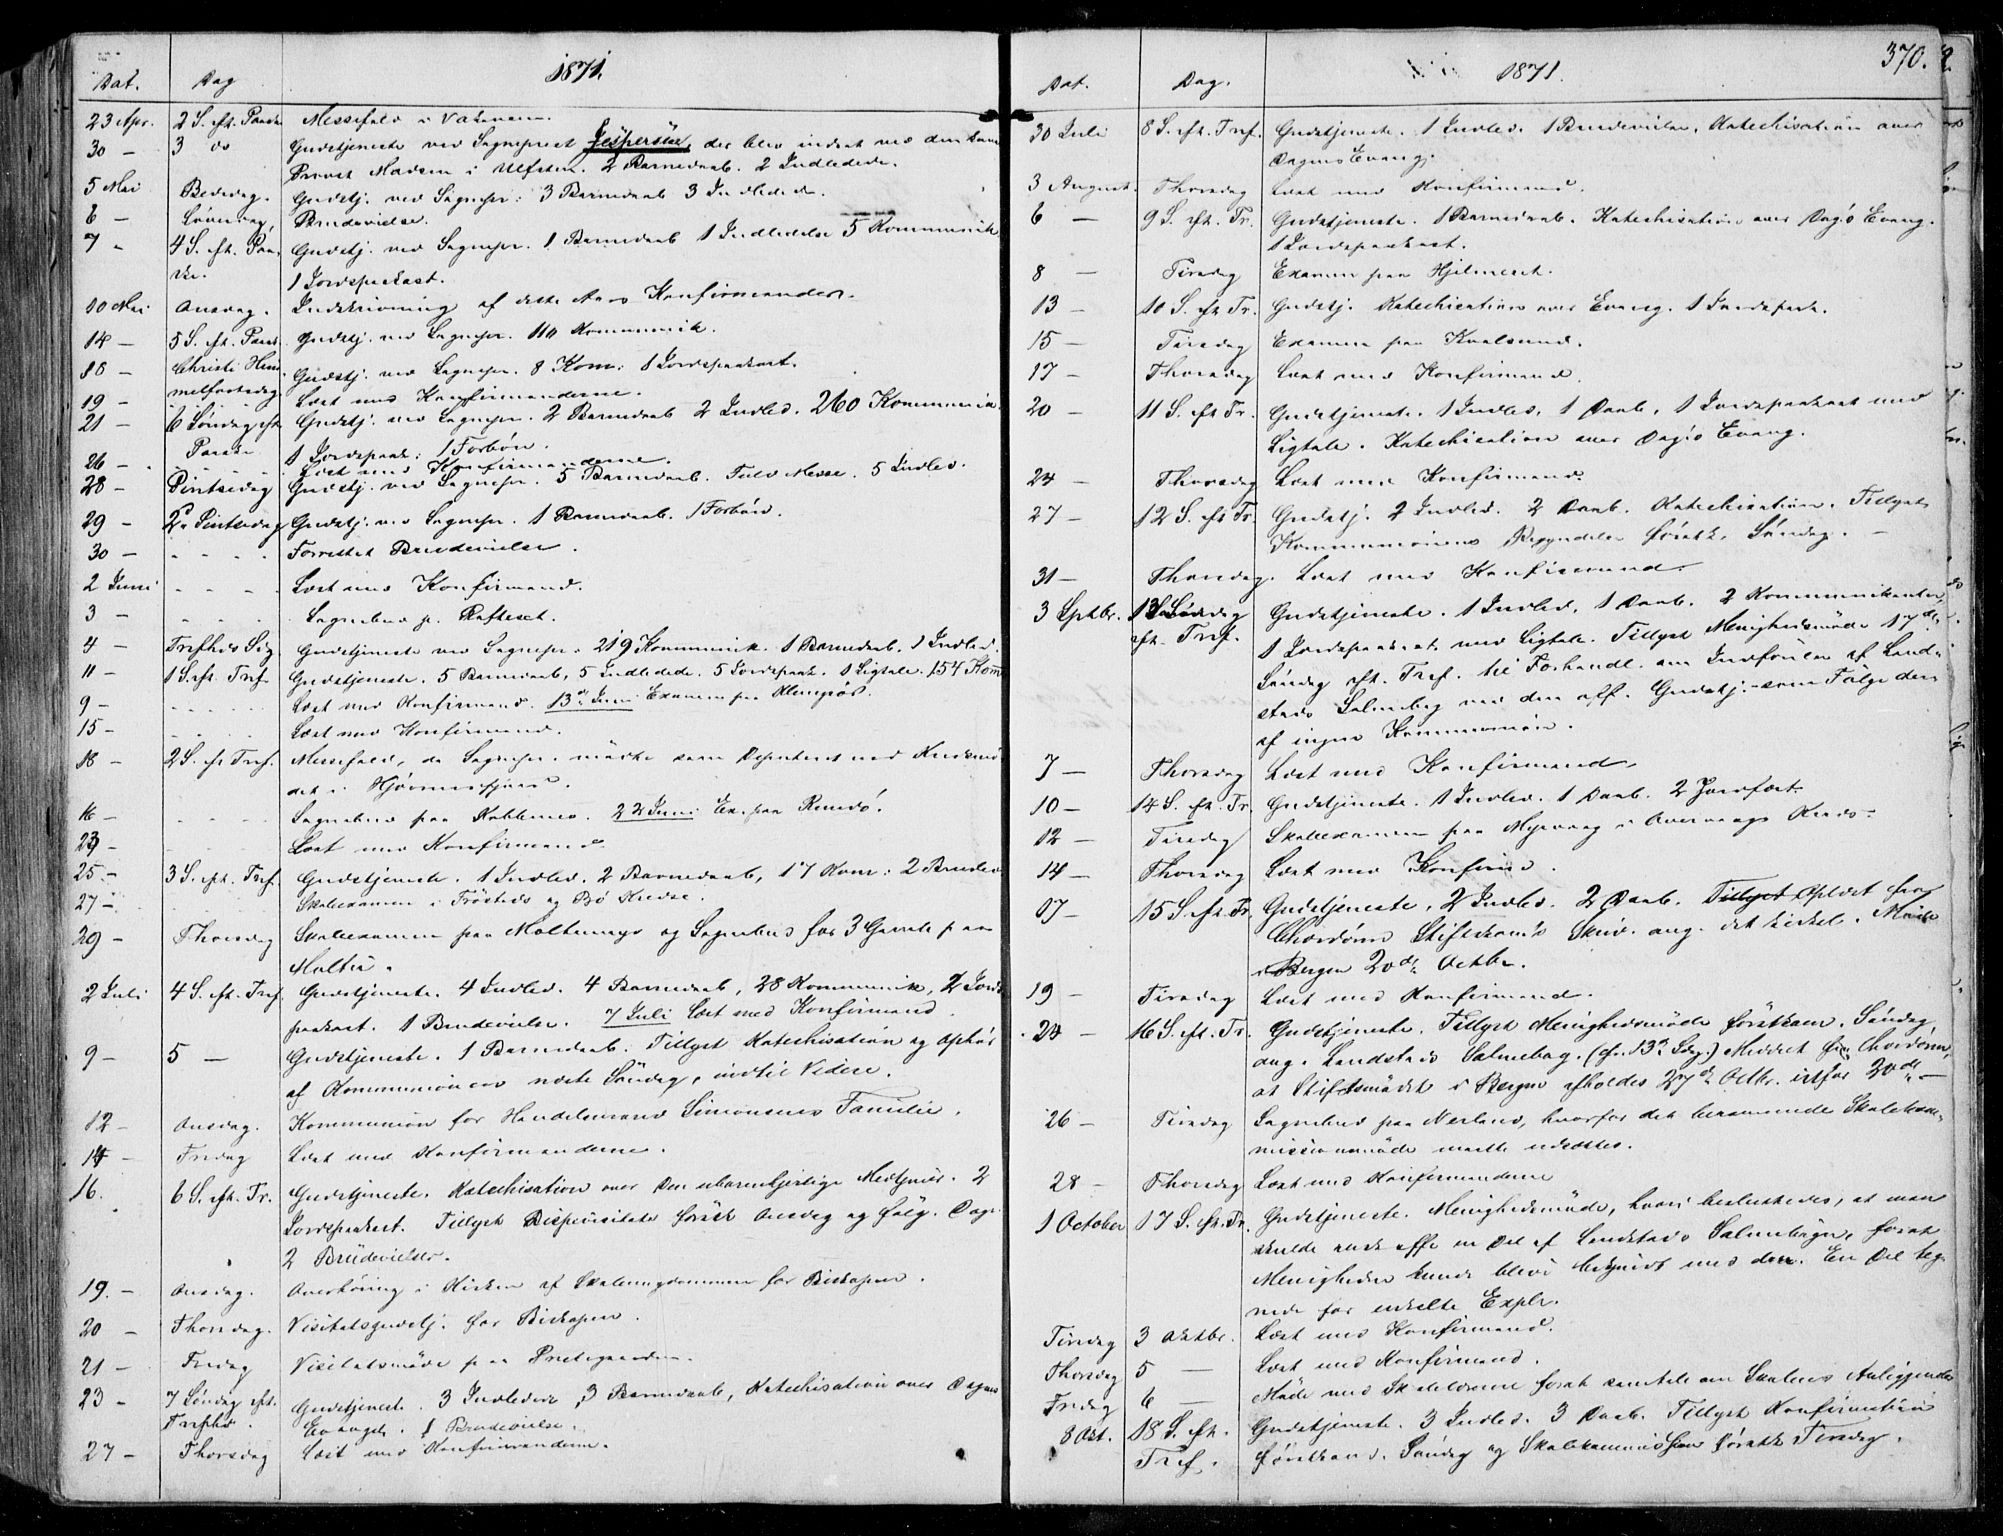 1871.
Dat. Dag
23 Apr. 2 S. eft. Paaske Messefald i Vakancen.
30 – 3 do Gudstjeneste ved Sogneprest Jespersen, der blev indsat ved den
Provst Madsen i Ulfsten. 2 Barnedaab. 2 Indledede.
5 Mai Bededag. Gudstj. ved Sognepr: 3 Barnedaab 3 Indledede.
6 – Løverdag Brudevielse.
7 – 4 S. eft. Paa- Gudstj. ved Sognepr. 1 Barnedaab 1 Indledelse 5 Kommunik
ske. 1 Jordspaakast.
10 Mai Onsdag. Indskrivning af dette Aars Konfirmander.
14 – 5 S. eft. Paask. Gudstj. ved Sognepr. 110 Kommunik.
18 – Christi Him- Gudstj. ved Sognepr. 8 Kom: 1 Jordspaakast.
melfartsdag
19 – Læst med Konfirmanderne.
21 – 6 Søndag eft. Gudstj. ved Sognepr. 2 Barnedaab 2 Indled. 260 Kommunik.
Paaske 1 Jordspaak: 1 Forbøn.
26 – Læst med Konfirmanderne.
28 – Pintsedag Gudstj. ved Sognepr. 5 Barnedaab. Fuld Messe. 5 Indled.
29 – 2n Pintsedag Gudstj. ved Sognepr. 1 Barnedaab. 1 Forbøn.
30 – Forrettet Brudevielse.
2 Juni Læst med Konfirmand.
3 – Sognebud p. Rafteset.
4 – Trefhds Søg. Gudstjeneste ved Sognepr. 219 Kommunik. 1 Barnedaab. 1 Indled.
11 – 1 S. eft. Tref. Gudstjeneste. 5 Barnedaab, 5 Indledede. 5 Jordspaak. 1 Ligtale. 154 Kom
9 – Læst med Konfirmand. 13de Juni Examen paa
15 – Læst med Konfirmand.
18 – 2 S. ef Tref. Messefald, da Sognepr. mødte som Deputeret ved
det i Hjørringfjord.
16 – Sognebud paa Koldenes. 22 Juni Ex. paa Remø.
23 – Læst med Konfirmand
25 – 3 S. eft. Tref. Gudstjeneste. 1 Indled. 2 Barnedaab, 17 Kom: 2 Brudev
27 – Skoleexamen i Frøstads og Bø Kredse.
29 – Thorsdag Skoleexamen paa Moltumyr og Sognebud for 3 Gamle paa
Moltu.
2 Juli 4 S. eft. Tref. Gudstjeneste. 4 Indled. 4 Barnedaab, 28 Kommunik, 2 Jords
paakast. 1 Brudevielse. 7 Juli læst med Konfirmand.
9 – 5 – Gudstjeneste. 1 Barnedaab. Tillyst Katechisation og Ophør
af Kommunionen næste Søndag, indtil Videre.
12 – Onsdag. Kommunion for Handelsmand Simonsens Familie.
14 – Fredag Læst med Konfirmanderne.
16. 6 S. eft. Tr. Gudstjeneste. Katechisation over Den ubarmhjertige Medtjener. 2
Jordspaakast. Tillyst Bispevisitats førstk Onsdag og følg. Dage
2 Brudevielser.
19. – Onsdag. Overhøring i Kirken af Skoleungdommen for Biskopen.
20 – Thorsdag. Visitatsgudstj. for Biskopen.
21 – Fredag Visitatsmøde paa Prestegaarden.
23 – 7 Søndag eft. Gudstjeneste. 3 Indledede, 3 Barnedaab, Katechisation over Dagens
Trefhd. Evangel. 1 Brudevielse.
27 – Thorsdag Læst med Konfirmanderne.
1871. 370.
Dat. Dag.
30 Juli 8 S. eft. Tref. Gudstjeneste. 1 Indled. 1 Brudevielse, Katechisation over
Dagens Evang.
3 August. Thorsdag Læst med Konfirmand.
6 – 9 S. eft. Tr. Gudstjeneste. 1 Barnedaab. Katechisation over Dag's Evang.
1 Jordspaakast.
8 – Tirsdag Examen paa Hjelmeset.
13 – 10 S. eft Tr. Gudstj. Katechisation over Evang. 1 Jordspaak.
15 – Tirsdag Examen paa Kvalsund.
17 – Thorsdag Læst med Konfirmand.
20 – 11 S. eft Tr. Gudstjeneste. 1 Indled, 1 Daab, 1 Jordspaakast med
Ligtale. Katechisation over Dag's Evang.
24 – Thorsdag Læst med Konfirmand.
27 – 12 S. eft Tr. Gudstj. 2 Indled. 2 Daab. Katechisation. Tillyst
Kommunionens Begyndelse førstk. Søndag. –
31 – Thorsdag. Læst med Konfirmand.
3 Sptbr. 13 Søndag Gudstjeneste. 1 Indled, 1 Daab. 2 Kommunikanter,
eft. Tref. 1 Jordspaakast med Ligtale. Tillyst Menighedsmøde 17de
Søndag eft. Tref. til Forhandl. om Indførelse af Land-
stads Salmebog ved den off. Gudstj. – som Følge den
af ingen Kommunion.
7 – Thorsdag Læst med Konfirmand.
10 – 14 S. eft. Tr. Gudstjeneste. 1 Indled. 1 Daab. 2 Jordfæst.
12 – Tirsdag Skoleexamen paa Myrvaag i Overvaags Kreds.
14 – Thorsdag Læst med Konfirmd.
17 – 15 S. eft. Tr. Gudstjeneste, 2 Indled. 2 Daab. Tillyst Oplæst fra
Chordømm Stiftskand's Skriv. ang. det kirkel. Møde
i Bergen 20de Octbr.
19 – Tirsdag Læst med Konfirmand.
24 – 16 S. eft. Tr. Gudstjeneste. Tillyst Menighedsmøde førstkom. Søndag
ang. Landstads Salmebog. (cfr. 13de Søg.) Meddelt fra Chordømm,
at Stiftsmødet i Bergen afholdes 27de Octbr. istfor 20de –
26 – Tirsdag Sognebud paa Nerland, hvorfor det berammede Skolekom-
missionsmøde maatte udsættes.
28 – Thorsdag Læst med Konfirmanderne
1 October 17 S. eft. Tr. Gudstjeneste. Menighedsmøde, hvori besluttedes, at man
skulde anskaffe en Del af Landstads Salmebøger, forat
Menigheden kunde blive bekjendt med den. En Del teg-
nede for enkelte Expl.
Tirsdag 3 Oktbr. Læst med Konfirmand.
Thorsdag 5 – Læst med Konfirmand.
Fredag 6 – Møde med Skolelærerne forat samtale om Skolens Anliggender
8 Okt. 18 S. eft. Gudstjeneste. 3 Indled. 3 Daab. Tillyst Konfirmation
Tref. førstkomd. Søndag og Skolekommission førstk Tirsdag.